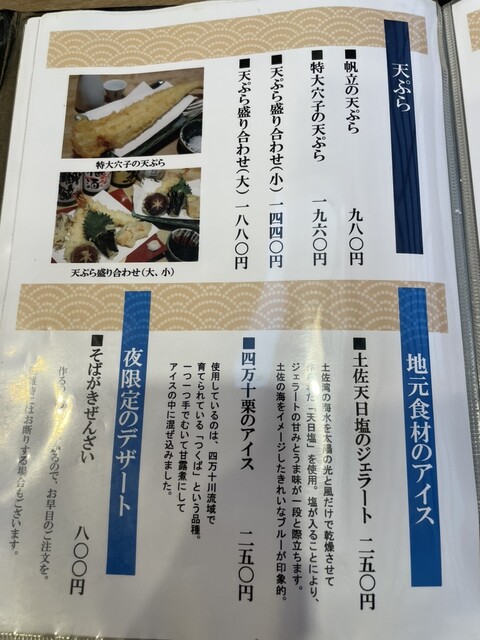 天ぷら
■帆立の天ぷら 九八〇円
■特大穴子の天ぷら 一九六〇円
■天ぷら盛り合わせ(小) 一四四〇円
■天ぷら盛り合わせ(大) 一八八〇円
特大穴子の天ぷら
天ぷら盛り合わせ(大、小)
地元食材のアイス
■土佐天日塩のジェラート 二五〇円
土佐湾の海水を太陽の光と風だけで乾燥させて
作った「天日塩」を使用。塩が入ることにより、
ジェラートの甘みとうま味が一段と際立ちます。
土佐の海をイメージしたきれいなブルーが印象的。
■四万十栗のアイス 二五〇円
使用しているのは、四万十川流域で
育てられている「つくば」という品種。
一つ一つ手でむいて甘露煮にして
アイスの中に混ぜ込みました。
夜限定のデザート
■そばがきぜんざい 八〇〇円
作る ので、お早目のご注文を。
はお断りする場合もございます。